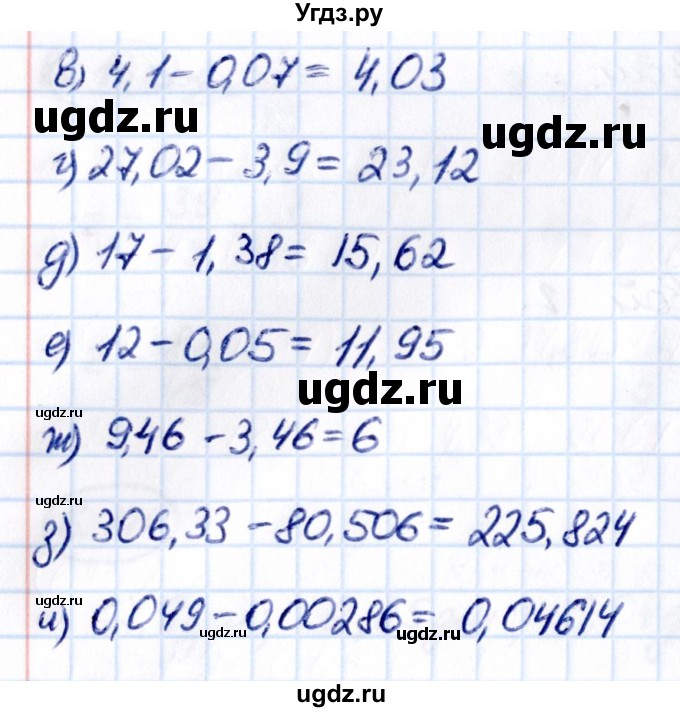 Угдз.ру
в) 4,1 - 0,07 = 4,03
ugdz.ru
ugdz.ru
г) 27,02 - 3,9 = 23,12
д) 17 - 1,38 = 15,62
е) 12 - 0,05 = 11,95
ugdz.ru
ugdz.ru
ж) 9,46 - 3,46 = 6
ugdz.ru
з) 306,33 - 80,506 = 225,824
и) 0,049 - 0,00286 = 0,04614
ugdz.ru
ugdz.ru
ugdz.ru